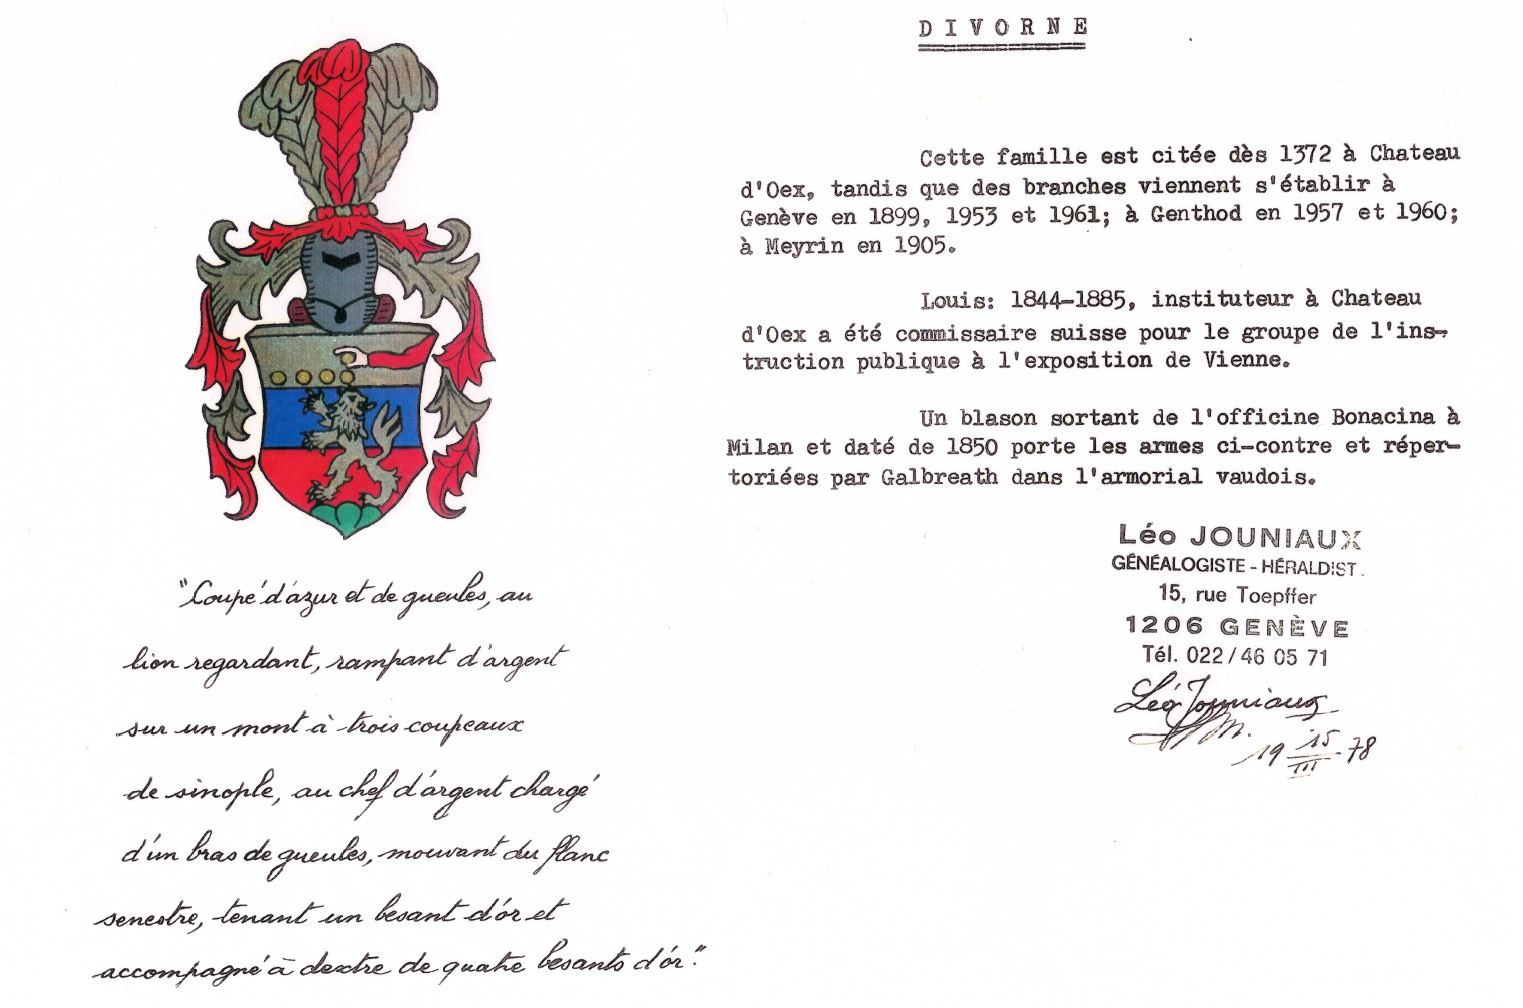 DIVORNE
Cette famille est citée dès 1372 à Chateau
d'Oex, tandis que des branches viennent s'établir à
Genève en 1899, 1953 et 1961; à Genthod en 1957 et 1960;
à Meyrin en 1905.
Louis: 1844-1885, instituteur à Chateau
d'Oex a été commissaire suisse pour le groupe de l'ins-
truction publique à l'exposition de Vienne.
Un blason sortant de l'officine Bonacina à
Milan et daté de 1850 porte les armes ci-contre et réper-
toriées par Galbreath dans l'armorial vaudois.
Léo JOUNIAUX
GÉNÉALOGISTE - HÉRALDIST.
15, rue Toepffer
1206 GENÈVE
Tél. 022/46 05 71
Léo Jouniaux
19 15/III 78
"Coupé d'azur et de gueules, au
lion regardant, rampant d'argent
sur un mont à trois coupeaux
de sinople, au chef d'argent chargé
d'un bras de gueules, mouvant du flanc
senestre, tenant un besant d'or et
accompagné à dextre de quatre besants d'or."